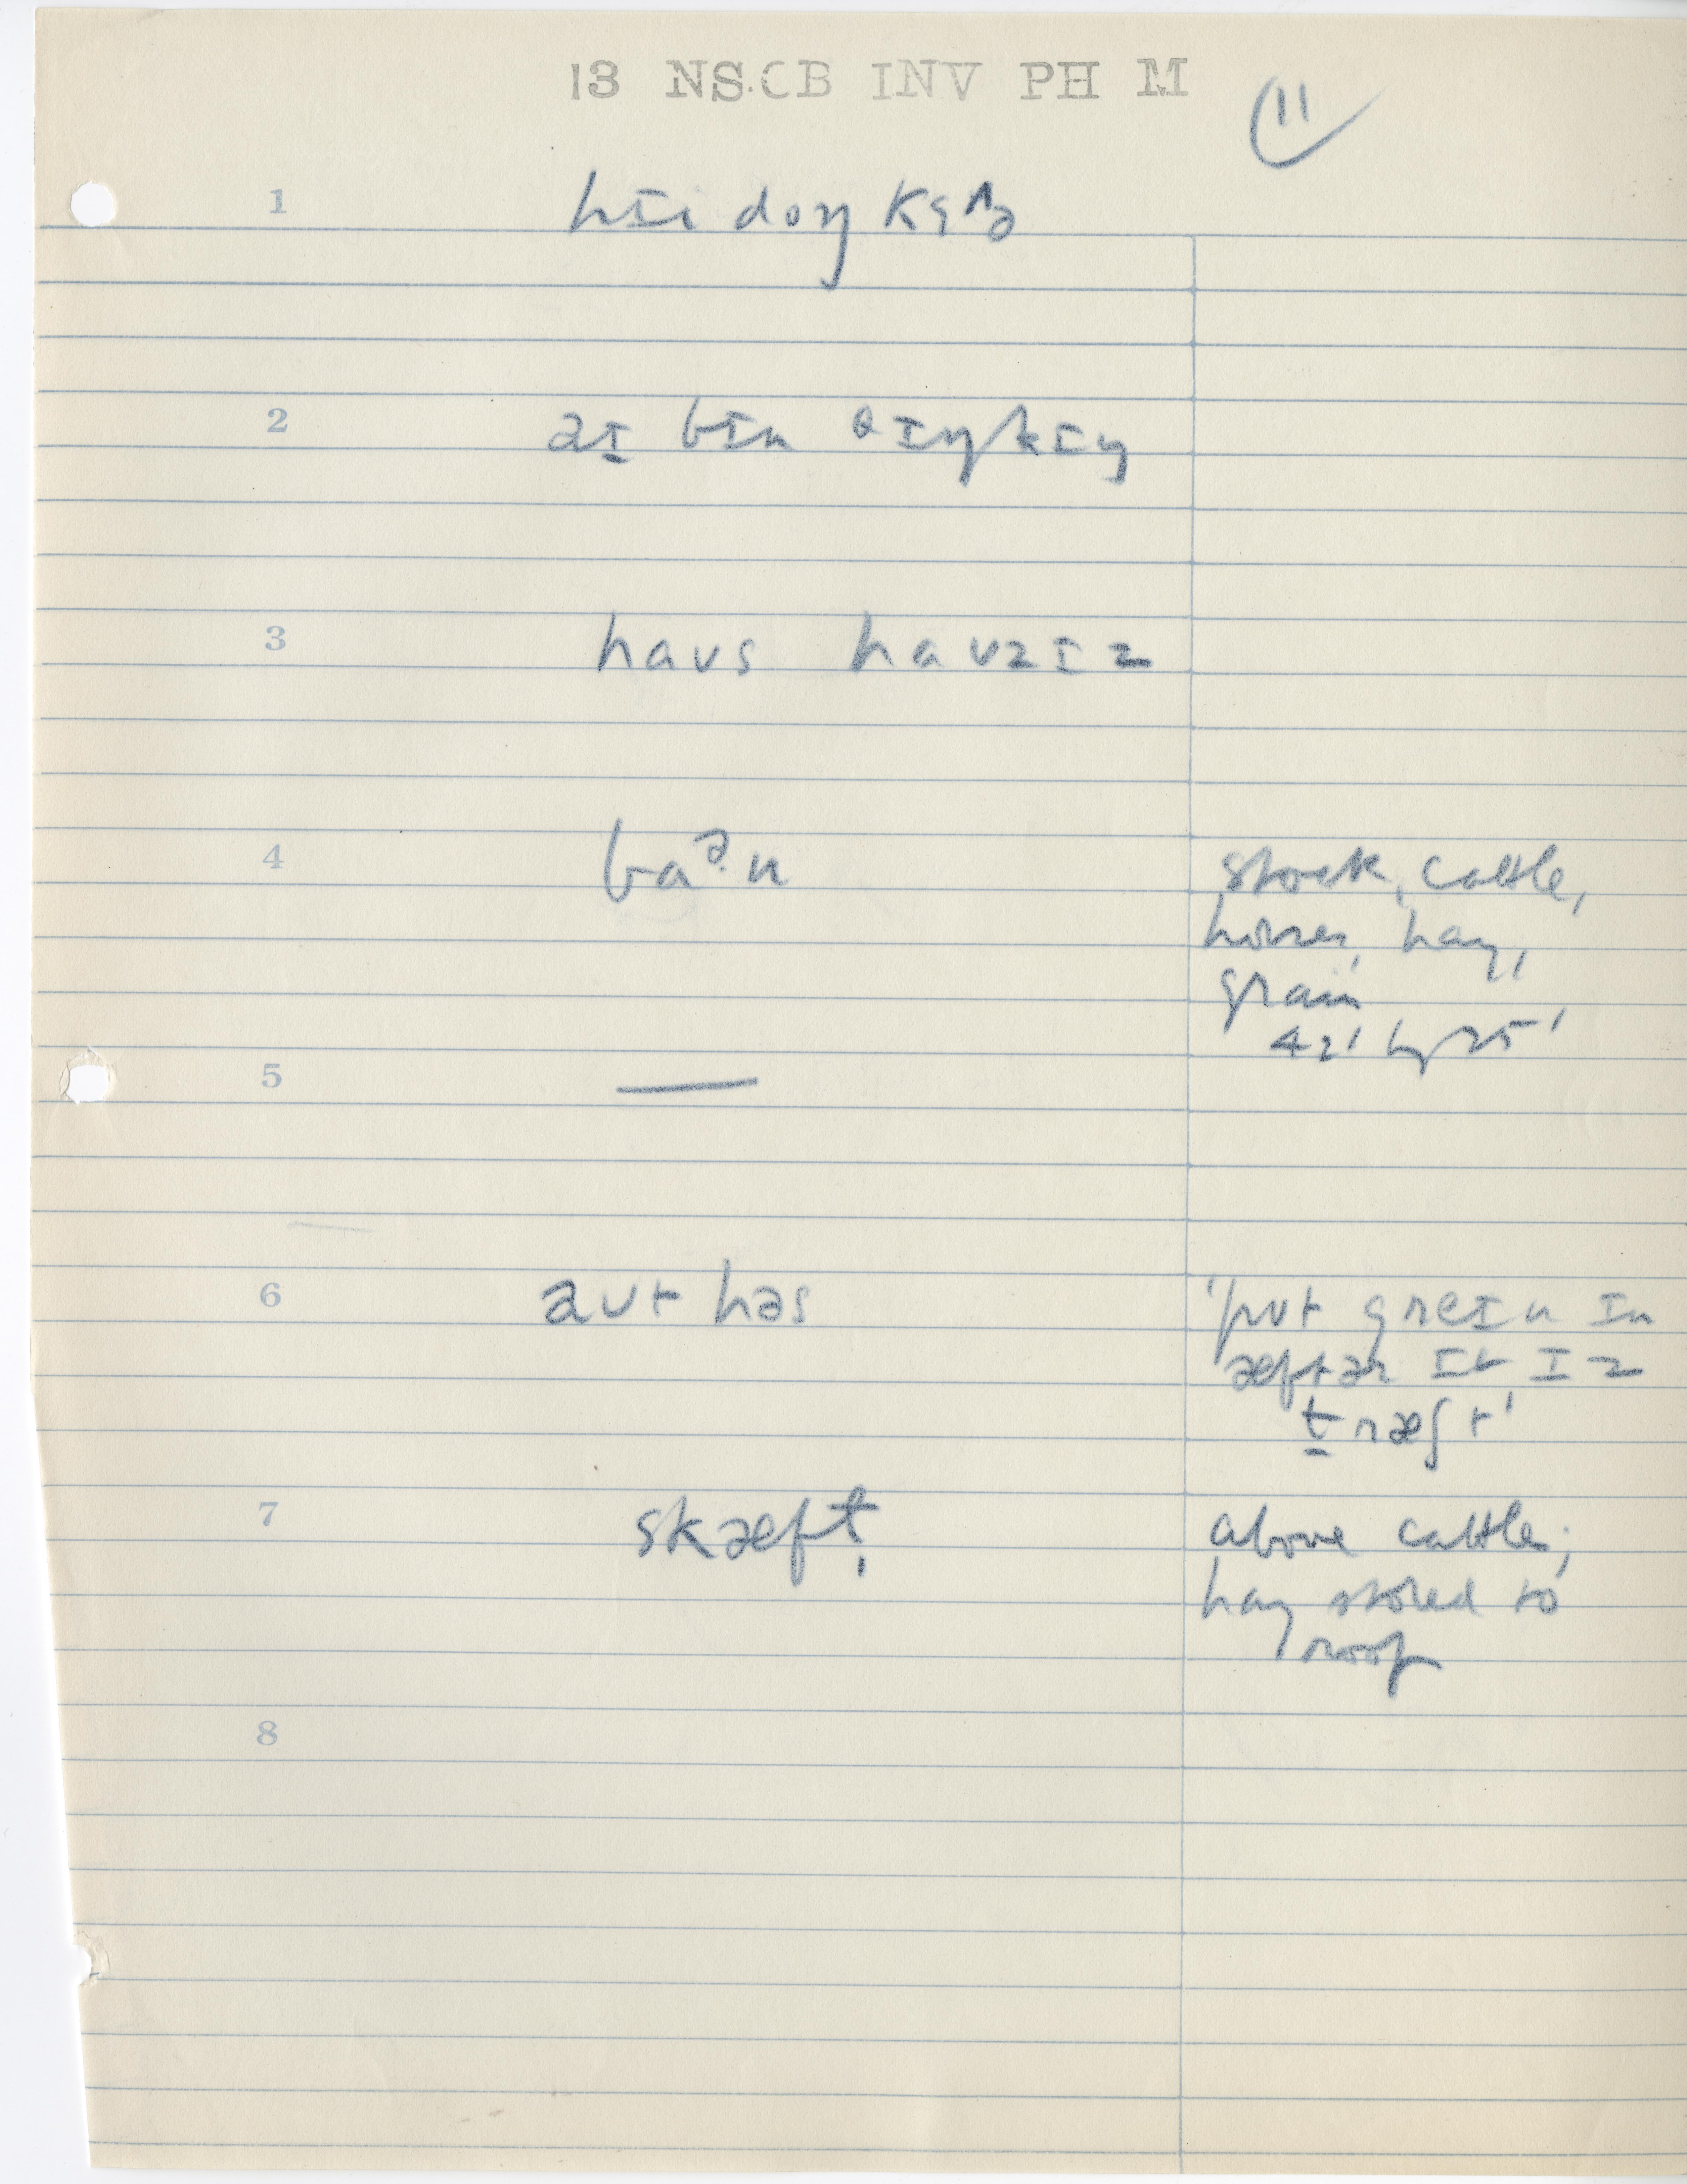 13 NS.CB INV PH M
11
1 hɪi doŋ
2 əɪ bɪn θɪŋkɪŋ
3 haʊs haʊzɪz
4 baᵊn
stock, cattle,
horses, hay,
grain
42' by 25'
5 —
6 əʊt həs
'pʊt greɪn ɪn
æftər ɪt ɪz
t̠ræʃt'
7 skæft̩
above cattle;
hay stored to
roof
8